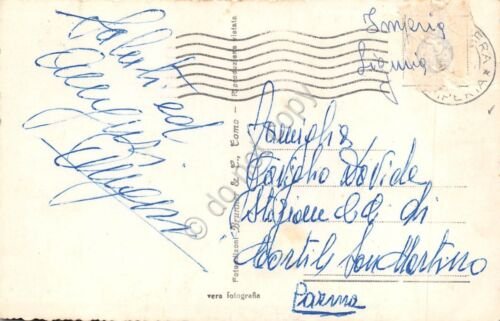 Saluti ed
Auguri
Imperia
Liguria
IMPERIA
Famiglia
Caviglia Davide
Stazione CC di
Cortile San Martino
Parma
vera fotografia
Fotoedizioni Brunner & C. Como - Riproduzione vietata